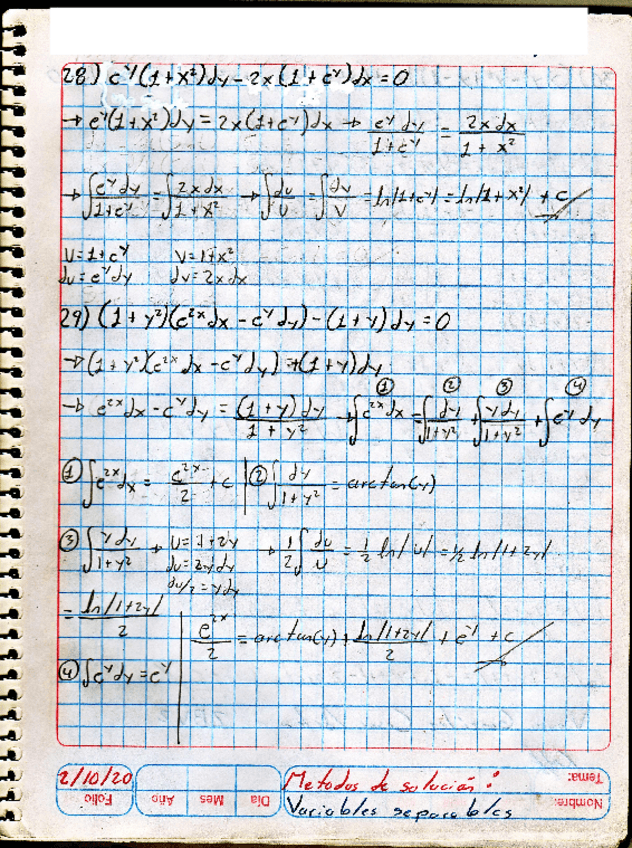 28) e^y(1+x²)dy - 2x(1+e^y)dx = 0
→ e^y(1+x²)dy = 2x(1+e^y)dx → e^y dy / 1+e^y = 2x dx / 1+x²
→ ∫ e^y dy / 1+e^y = ∫ 2x dx / 1+x² → ∫ du/U = ∫ dv/V = ln|1+e^y| = ln|1+x²| + c
U=1+e^y V=1+x²
du=e^y dy dv=2xdx
29) (1+y²)(e^2x dx - e^y dy) - (1+y)dy = 0
→ (1+y²)(e^2x dx - e^y dy) = +(1+y)dy
① ② ③ ④
→ e^2x dx - e^y dy = (1+y)dy / 1+y² → ∫ e^2x dx = ∫ dy / 1+y² + ∫ y dy / 1+y² + ∫ e^y dy
① ∫ e^2x dx = e^2x / 2 + c ② ∫ dy / 1+y² = arctan(y)
③ ∫ y dy / 1+y² → U=1+2y → 1/2 ∫ du/U = 1/2 ln|u| = 1/2 ln|1+2y|
du=2ydy
du/2=ydy
= ln|1+2y| / 2
e^2x / 2 = arctan(y) + ln|1+2y| / 2 + e^y + c
④ ∫ e^y dy = e^y
2/10/20
Folio Año Mes Día
Metodos de solución:
Tema:
Variables separables
Nombre: